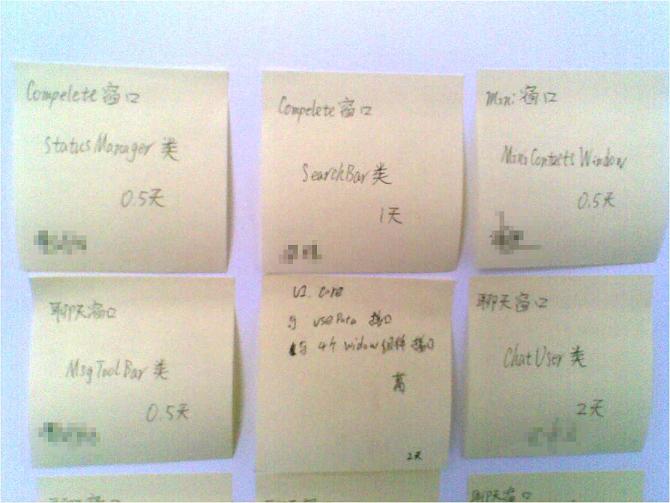 Compelete 窗口
StatusManager 类
0.5天
Compelete 窗口
SearchBar 类
1天
Mini 窗口
MiniContactsWindow
0.5天
聊天窗口
MsgToolBar 类
0.5天
UI. Core
与 userData 接口
与 4个 widow 组件 接口
高
2天
聊天窗口
ChatUser 类
2天
聊天窗口